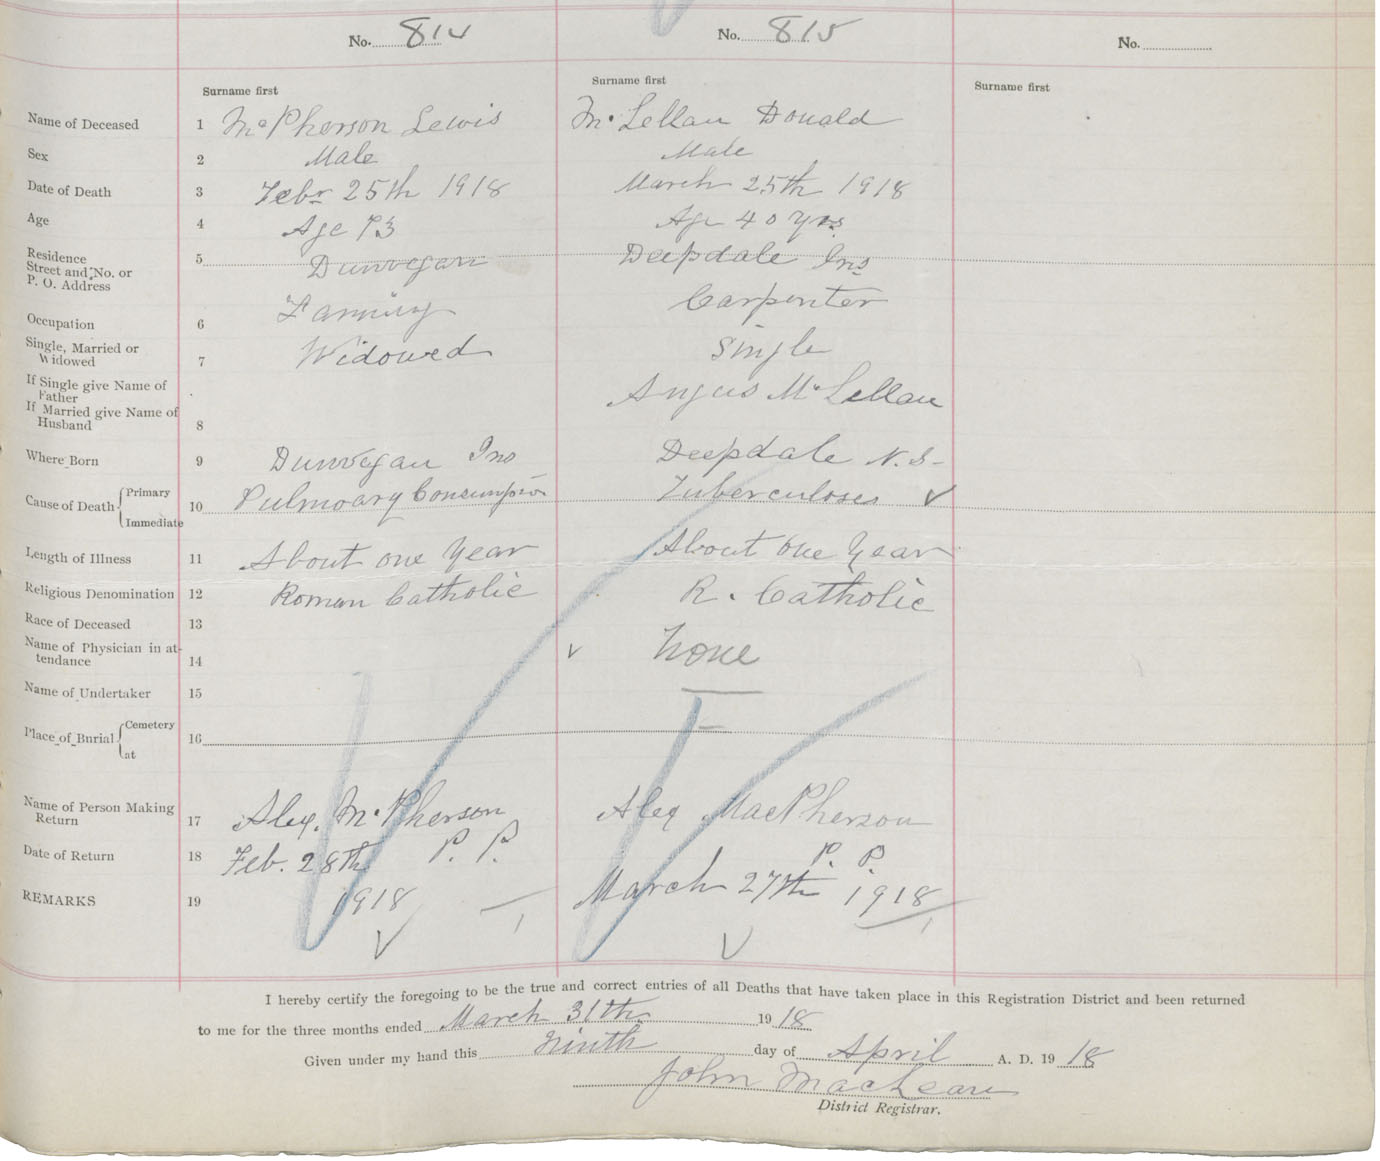 No. 814 No. 815 No.
Surname first Surname first Surname first
Name of Deceased 1 McPherson Lewis McLellan Donald
Sex 2 Male Male
Date of Death 3 Febr 25th 1918 March 25th 1918
Age 4 Age 73 Age 40 yrs
Residence
Street and No. or
P. O. Address 5 Dunvegan Deepdale Ins
Occupation 6 Farming Carpenter
Single, Married or
Widowed 7 Widowed Single
If Single give Name of
Father Angus McLellan
If Married give Name of
Husband 8
Where Born 9 Dunvegan Ins Deepdale N. S.
Cause of Death { Primary
Immediate 10 Pulmoary Consumption Tuberculoses ✓
Length of Illness 11 About one Year About one Year
Religious Denomination 12 Roman Catholic R. Catholic
Race of Deceased 13
Name of Physician in at-
tendance 14 ✓ None
Name of Undertaker 15
Place of Burial { Cemetery
at 16
Name of Person Making
Return 17 Alex. McPherson Alex MacPherson
P. P. P. P.
Date of Return 18 Feb. 28th March 27th 1918
REMARKS 19 1918
I hereby certify the foregoing to be the true and correct entries of all Deaths that have taken place in this Registration District and been returned
to me for the three months ended March 31th 1918
Given under my hand this Ninth day of April A. D. 1918
John MacLean
District Registrar.